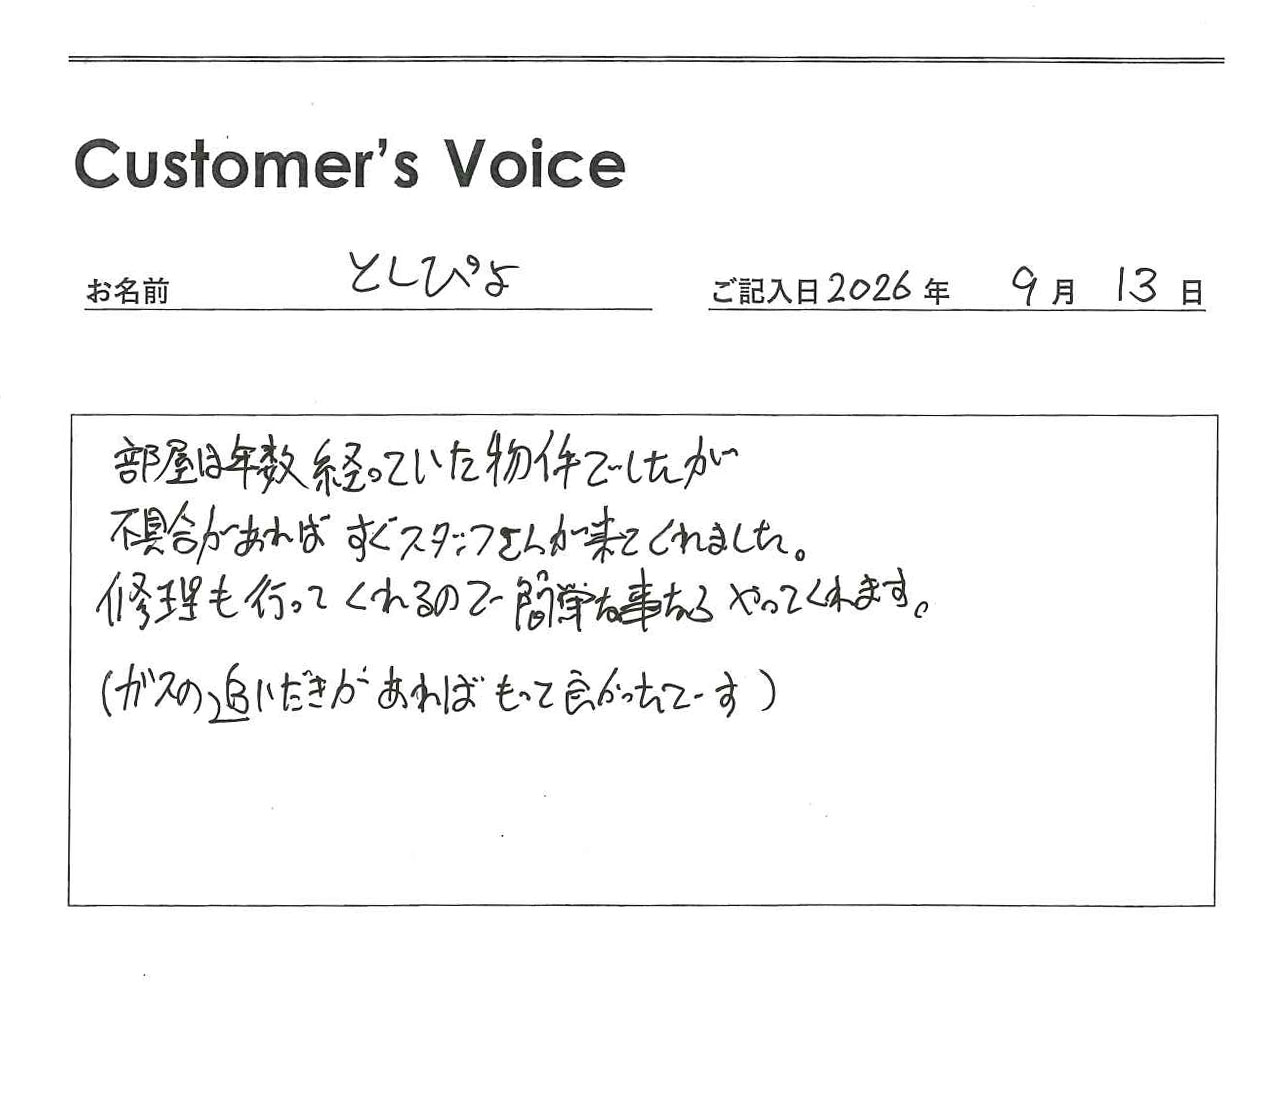 Customer's Voice
お名前 としぴよ ご記入日 2026 年 9 月 13 日
部屋は年数経っていた物件でしたが
不具合があれば すぐスタッフさんが来てくれました。
修理も行ってくれるので簡単な事なら やってくれます。
(ガスの追いだきがあれば もって良かったでーす)